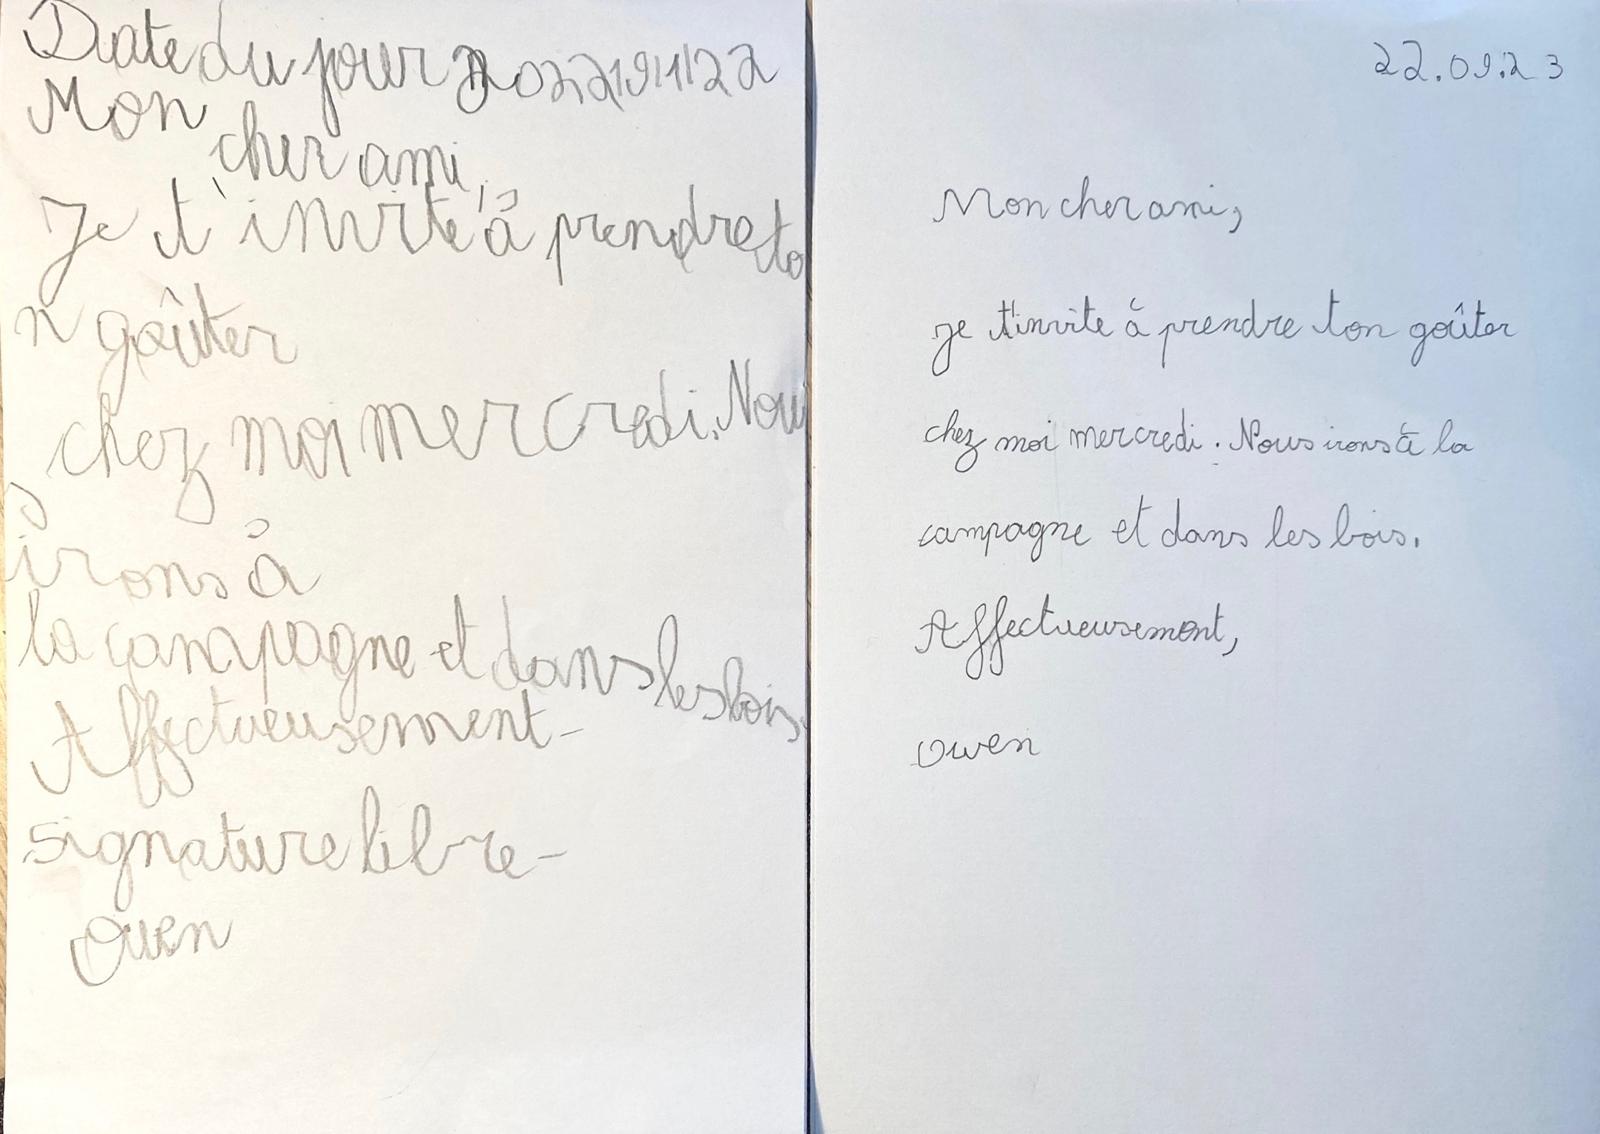 Date du jour 2022/9/1/22
Mon
cher ami,
Je t'invite à prendre to
n goûter
chez moi mercredi. Nou
s
irons à
la campagne et dans les bois.
Affectueusement-
signature libre-
Owen
22.09.23
Mon cher ami,
je t'invite à prendre ton goûter
chez moi mercredi. Nous irons à la
campagne et dans les bois.
Affectueusement,
Owen